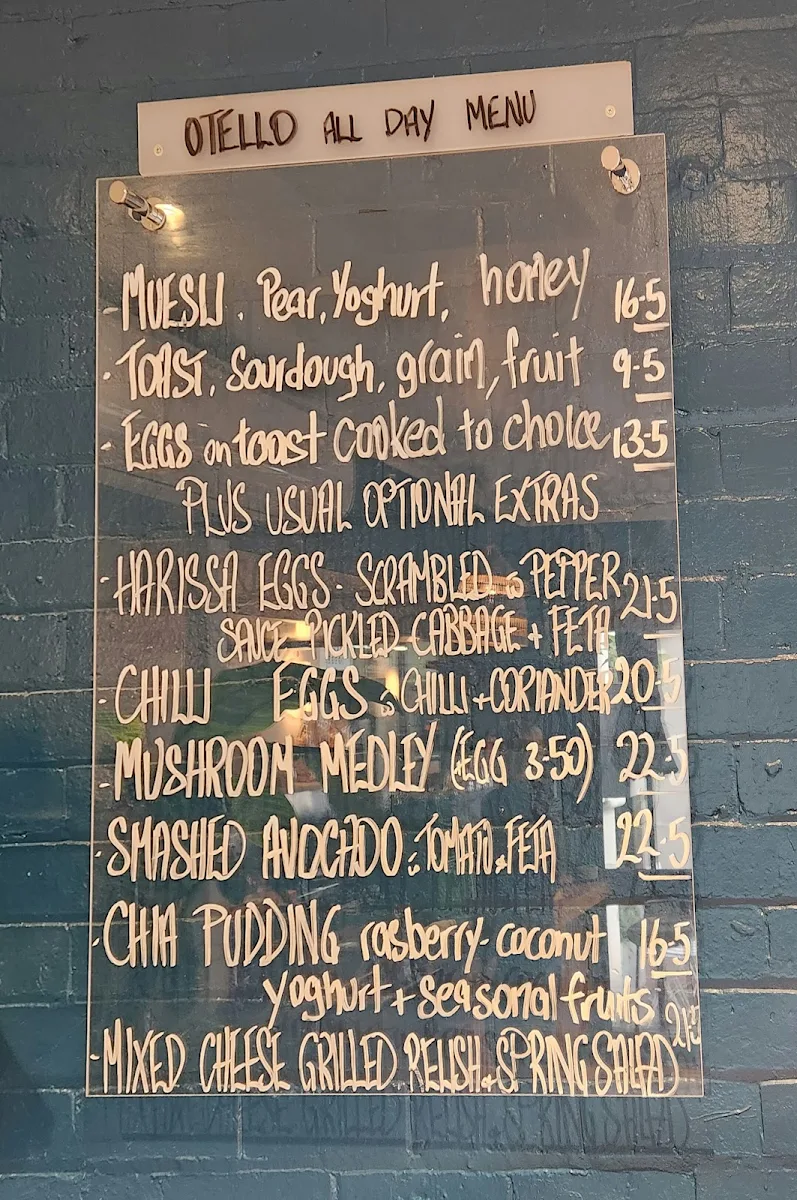 OTELLO ALL DAY MENU
- MUESLI. Pear, Yoghurt, honey 16.5
- TOAST, Sourdough, grain, fruit 9.5
- EGGS on toast cooked to choice 13.5
PLUS USUAL OPTIONAL EXTRAS
- HARISSA EGGS - SCRAMBLED & PEPPER 21.5
SAUCE, PICKLED CABBAGE + FETA
- CHILLI EGGS & CHILLI + CORIANDER 20.5
- MUSHROOM MEDLEY (EGG 3.50) 22.5
- SMASHED AVOCADO & TOMATO & FETA 22.5
- CHIA PUDDING rasberry-coconut 16.5
yoghurt + seasonal fruits
- MIXED CHEESE GRILLED RELISH & SPRING SALAD 21.5